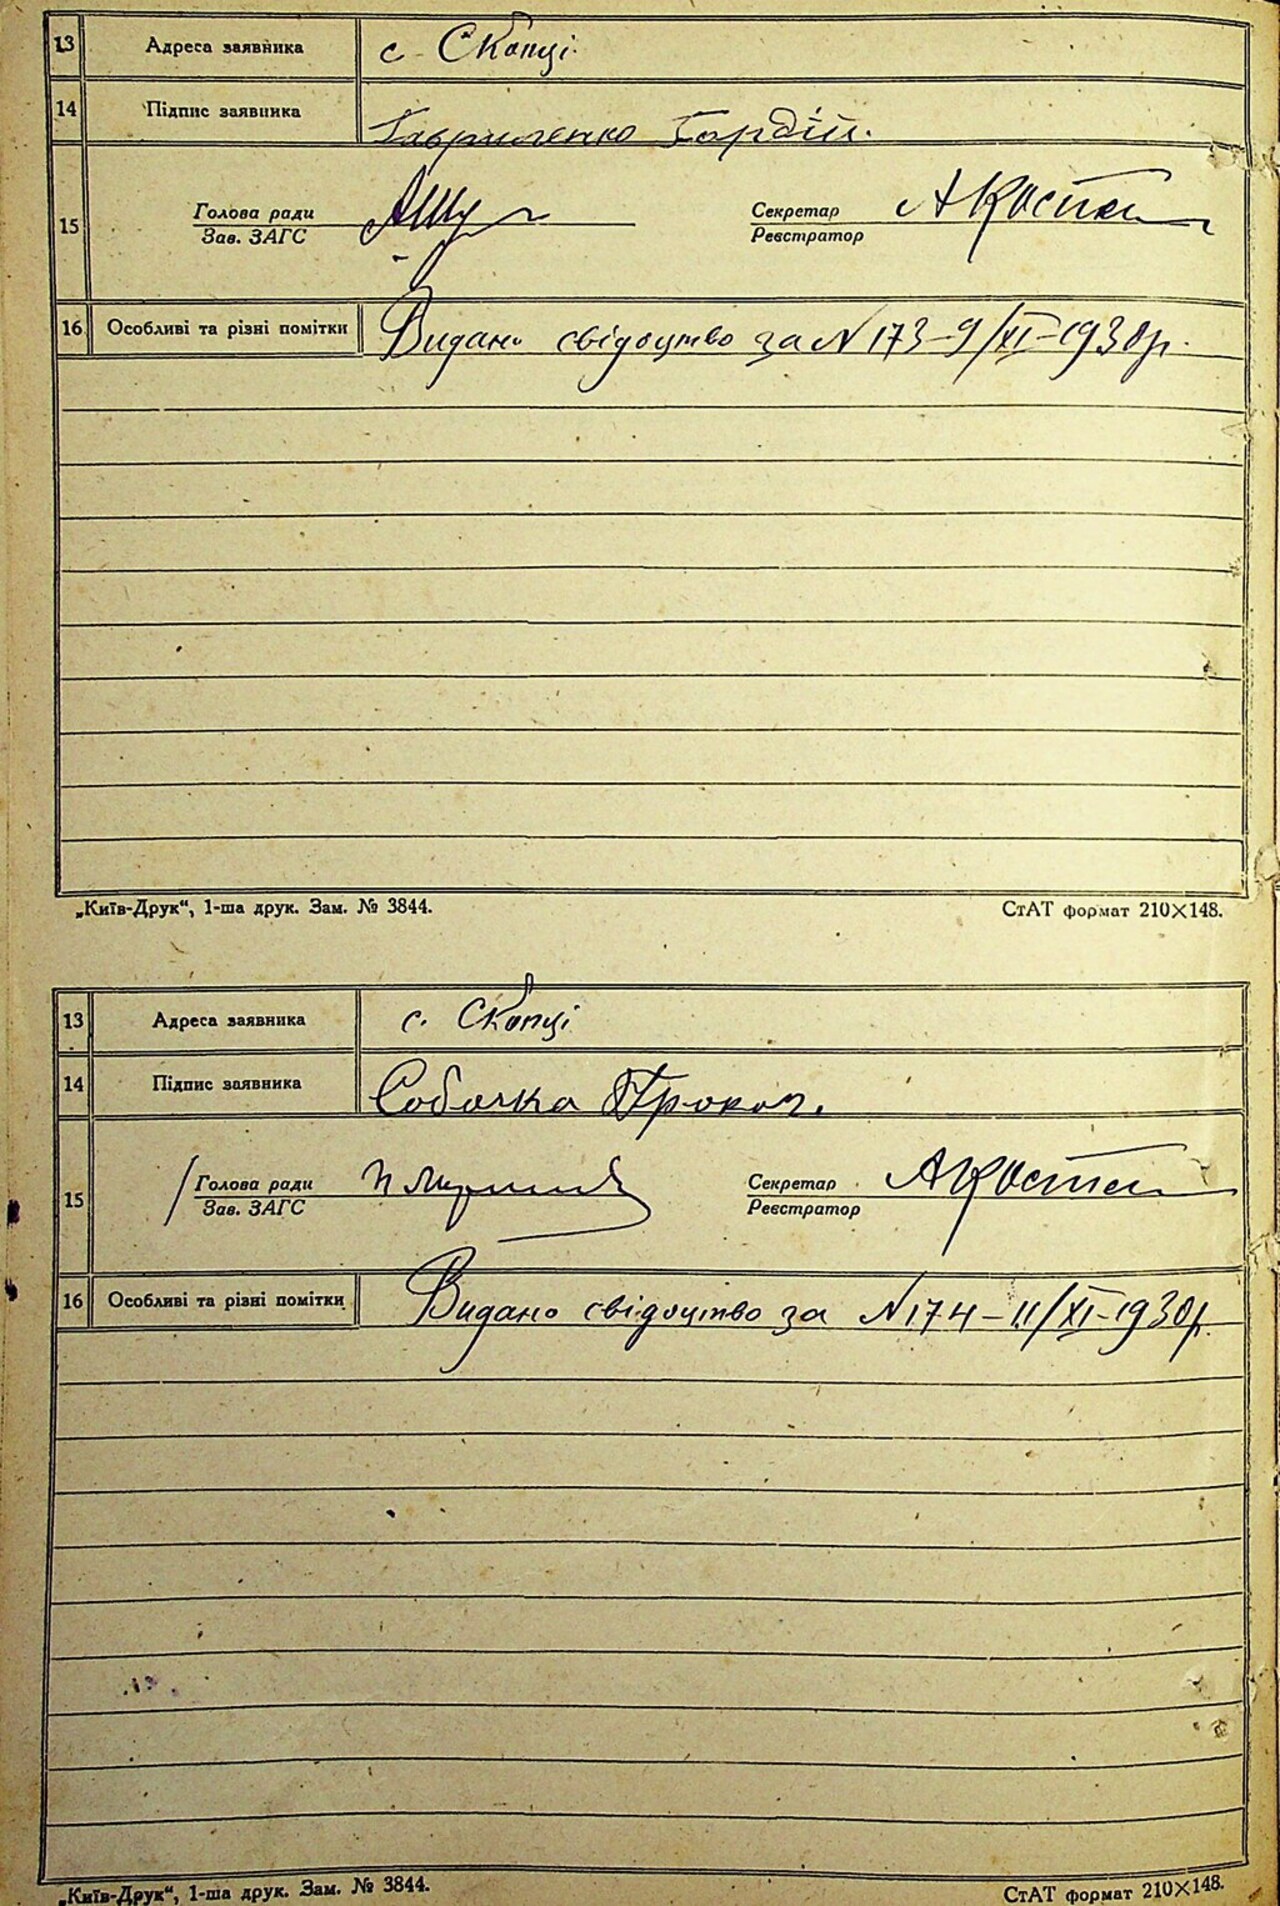 13 Адреса заявника с. Скопці
14 Підпис заявника Гавриленко Гордій.
15 Голова ради Секретар А Костен
Зав. ЗАГС Реєстратор
16 Особливі та різні помітки Видано свідоцтво за N 173-9/XI-1930р.
„Київ-Друк“, 1-ша друк. Зам. № 3844. СтАТ формат 210×148.
13 Адреса заявника с. Скопці
14 Підпис заявника Собочка Прокоп.
15 Голова ради Секретар А Костен
Зав. ЗАГС Реєстратор
16 Особливі та різні помітки Видано свідоцтво за N 174-11/XI-1930р.
„Київ-Друк“, 1-ша друк. Зам. № 3844. СтАТ формат 210×148.